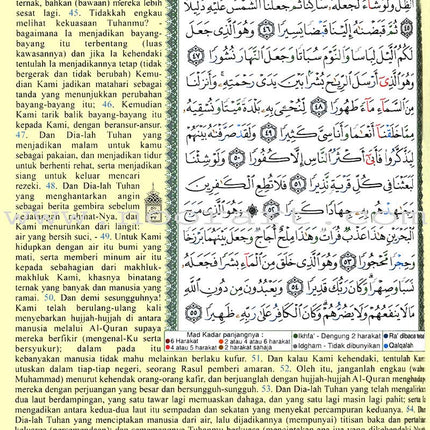 ternak, bahkan (bawaan) mereka lebih
sesat lagi. 45. Tidakkah engkau
melihat kekuasaan Tuhanmu? -
bagaimana Ia menjadikan bayang-
bayang itu terbentang (luas
kawasannya) dan jika Ia kehendaki
tentulah Ia menjadikannya tetap (tidak
bergerak dan tidak berubah) Kemu-
dian Kami jadikan matahari sebagai
tanda yang menunjukkan perubahan
bayang-bayang itu; 46. Kemudian
Kami tarik balik bayang-bayang itu
kepada Kami, dengan beransur-ansur.
47. Dan Dia-lah Tuhan yang
menjadikan malam untuk kamu
sebagai pakaian, dan menjadikan tidur
untuk berhenti rehat, serta menjadikan
siang untuk keluar mencari
rezeki. 48. Dan Dia-lah Tuhan
yang menghantarkan angin
sebagai berita gembira sebelum
kedatangan rahmat-Nya, dan
Kami menurunkan dari langit:
air yang bersih suci, - 49. Untuk Kami
hidupkan dengan air itu bumi yang
mati, serta memberi minum air itu
kepada sebahagian dari makhluk-
makhluk Kami, khasnya binatang
ternak yang banyak dan manusia yang
ramai. 50. Dan demi sesungguhnya!
Kami telah berulang-ulang kali
menyebarkan hujjah-hujjah di antara
manusia melalui Al-Quran supaya
mereka berfikir (mengenal-Ku serta
bersyukur); dalam pada itu
ثُمَّ قَبَضْنَاهُ إِلَيْنَا قَبْضًا يَسِيرًا ٤٦ وَهُوَ الَّذِي جَعَلَ
لَكُمُ اللَّيْلَ لِبَاسًا وَالنَّوْمَ سُبَاتًا وَجَعَلَ النَّهَارَ نُشُورًا ٤٧
وَهُوَ الَّذِي أَرْسَلَ الرِّيَاحَ بُشْرًا بَيْنَ يَدَيْ رَحْمَتِهِ وَأَنْزَلْنَا
مِنَ السَّمَاءِ مَاءً طَهُورًا ٤٨ لِنُحْيِيَ بِهِ بَلْدَةً مَيْتًا وَنُسْقِيَهُ
مِمَّا خَلَقْنَا أَنْعَامًا وَأَنَاسِيَّ كَثِيرًا ٤٩ وَلَقَدْ صَرَّفْنَاهُ بَيْنَهُمْ
لِيَذَّكَّرُوا فَأَبَىٰ أَكْثَرُ النَّاسِ إِلَّا كُفُورًا ٥٠ وَلَوْ شِئْنَا
لَبَعَثْنَا فِي كُلِّ قَرْيَةٍ نَذِيرًا ٥١ فَلَا تُطِعِ الْكَافِرِينَ
جِهَادًا كَبِيرًا ٥٢ وَهُوَ الَّذِي مَرَجَ
الْبَحْرَيْنِ هَٰذَا عَذْبٌ فُرَاتٌ وَهَٰذَا مِلْحٌ أُجَاجٌ وَجَعَلَ بَيْنَهُمَا بَرْزَخًا
وَحِجْرًا مَحْجُورًا ٥٣ وَهُوَ الَّذِي خَلَقَ مِنَ الْمَاءِ بَشَرًا فَجَعَلَهُ
نَسَبًا وَصِهْرًا وَكَانَ رَبُّكَ قَدِيرًا ٥٤ وَيَعْبُدُونَ مِنْ دُونِ اللَّهِ
مَا لَا يَنْفَعُهُمْ وَلَا يَضُرُّهُمْ وَكَانَ الْكَافِرُ عَلَىٰ رَبِّهِ ظَهِيرًا ٥٥
Mad Kadar panjangnya :
6 Harakat 2 atau 4 atau 6 harakat
4 atau 5 harakat 2 harakat sahaja
Ikhfa' - Dengung 2 harakat
Idgham - Tidak dibunyikan Qalqalah
kebanyakan manusia tidak mahu melainkan berlaku kufur. 51. Dan kalau Kami kehendaki, tentulah Kami
utuskan dalam tiap-tiap negeri, seorang Rasul pemberi amaran. 52. Oleh itu, janganlah engkau (wahai
Muhammad) menurut kehendak orang-orang kafir, dan berjuanglah dengan hujjah-hujjah Al-Quran menghadapi
mereka dengan perjuangan yang besar dan bersungguh-sungguh. 53. Dan Dia-lah Tuhan yang telah mengalirkan
dua laut berdampingan, yang satu tawar lagi memuaskan dahaga, dan yang satu lagi masin lagi pahit; serta Ia
mengadikan antara kedua-dua laut itu sempadan dan sekatan yang menyekat percampuran keduanya. 54. Dan
Dia-lah Tuhan yang menciptakan manusia dari air, lalu dijadikannya (mempunyai) titisan baka dan pertalian